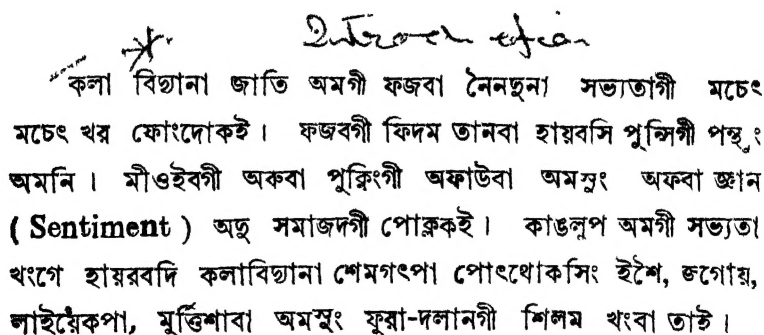 Introduction
কলা বিদ্যানা জাতি অমগী ফজবা নৈনদুনা সভ্যতাগী মচেৎ
মচেৎ খর ফোংদোকই। ফজবগী ফিদম তানবা হায়বসি পুন্সিগী পন্থুং
অমনি। মীওইবগী অরুবা পুক্নিংগী অফাউবা অমসুং অফবা জ্ঞান
( Sentiment ) অদু সমাজদগী পোক্লকই। কাঙলুপ অমগী সভ্যতা
খংগে হায়রবদি কলাবিদ্যানা শেমগৎপা পোৎথোকসিং ইশৈ, জগোয়,
লাইয়েকপা, মুর্ত্তিশাবা অমসুং ফুরা-দলানগী শিলম খংবা তাই।